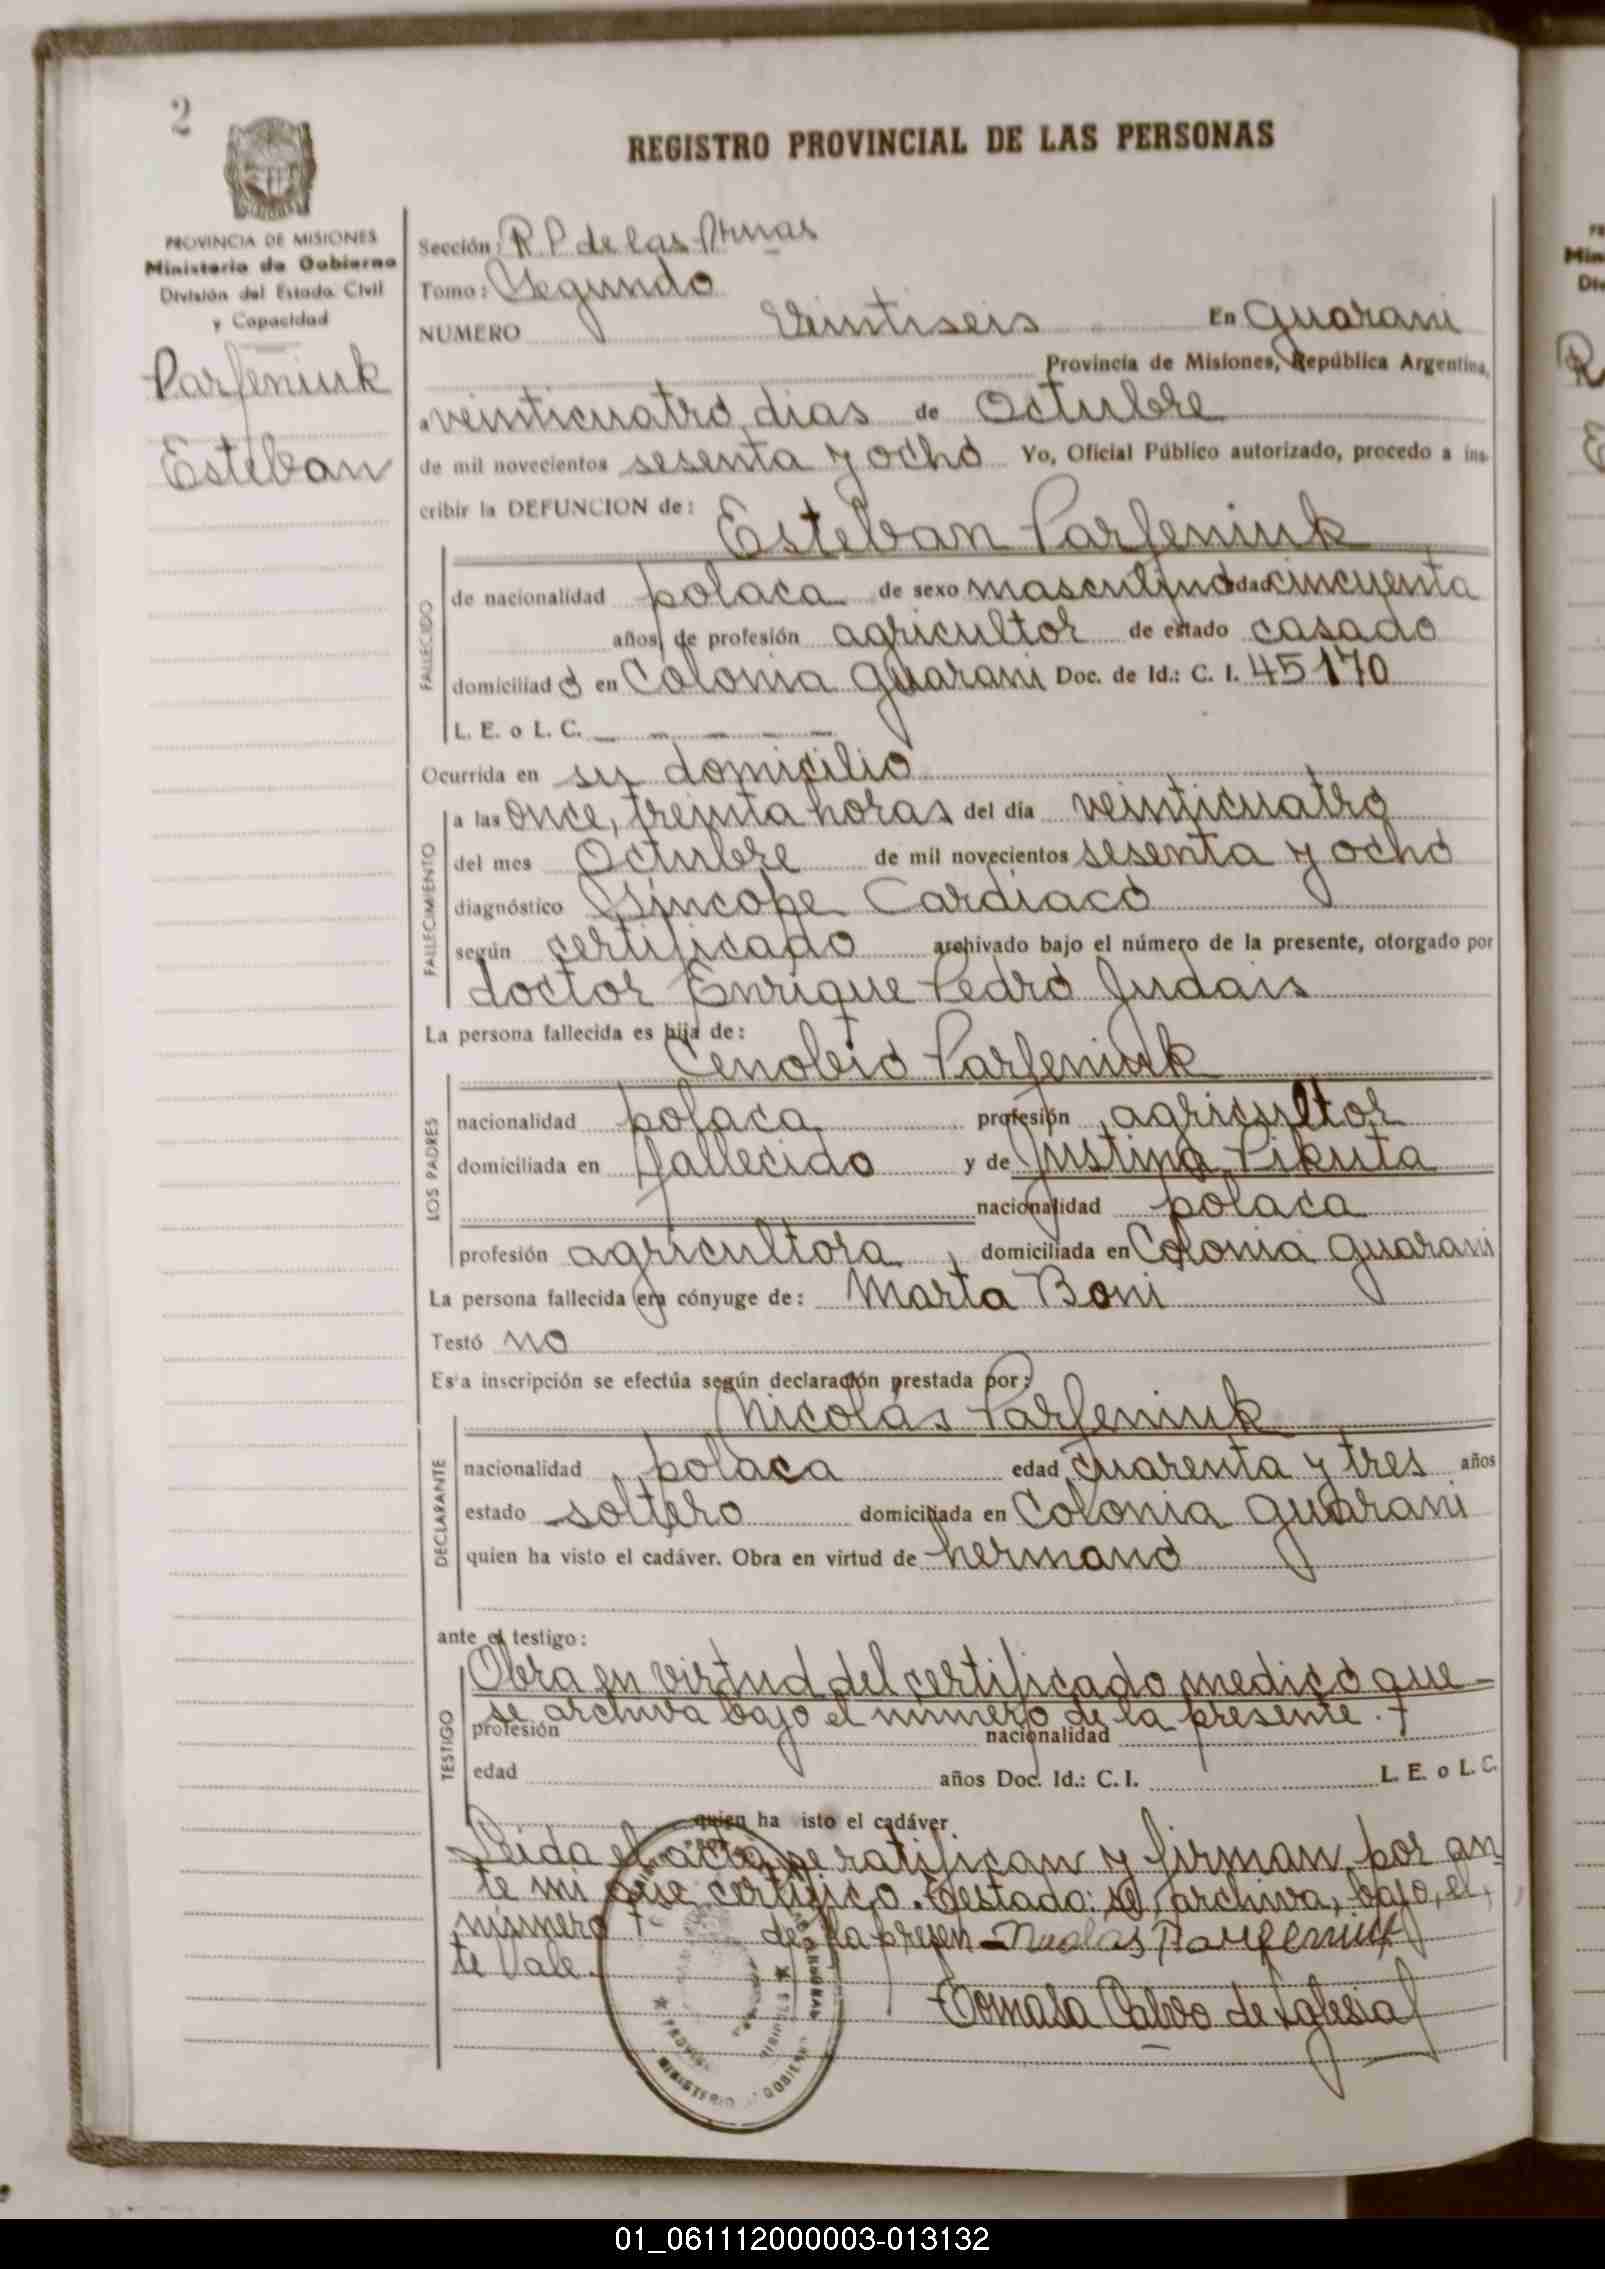 2
REGISTRO PROVINCIAL DE LAS PERSONAS
PROVINCIA DE MISIONES
Ministerio de Gobierno
División del Estado Civil
y Capacidad
Parfeniuk
Esteban
Sección: R. P. de las
Tomo: Segundo
NUMERO Veintiseis En Guarani
Provincia de Misiones, República Argentina,
a veinticuatro dias de Octubre
de mil novecientos sesenta y ocho Yo, Oficial Público autorizado, procedo a ins-
cribir la DEFUNCION de:
Esteban Parfeniuk
FALLECIDO
de nacionalidad polaca de sexo masculino edad cincuenta
años, de profesión agricultor de estado casado
domiciliad o en Colonia Guarani Doc. de Id.: C. I. 45170
L. E. o L. C. — — — — —
Ocurrida en su domicilio
FALLECIMIENTO
a las once, treinta horas del día veinticuatro
del mes Octubre de mil novecientos sesenta y ocho
diagnóstico Síncope Cardiaco
según certificado archivado bajo el número de la presente, otorgado por
doctor Enrique Pedro Judais
La persona fallecida es hija de:
Cenobio Parfeniuk
LOS PADRES
nacionalidad polaca profesión agricultor
domiciliada en fallecido y de Justina Pikuta
nacionalidad polaca
profesión agricultora domiciliada en Colonia Guarani
La persona fallecida era cónyuge de: Marta Boni
Testó no
Esta inscripción se efectúa según declaración prestada por:
Nicolás Parfeniuk
DECLARANTE
nacionalidad polaca edad cuarenta y tres años
estado soltero domiciliada en Colonia Guarani
quien ha visto el cadáver. Obra en virtud de hermano
ante el testigo:
TESTIGO
Obra en virtud del certificado medico que
se archiva bajo el número de la presente.
profesión nacionalidad
edad años Doc. Id.: C. I. L. E. o L. C.
quien ha visto el cadáver
Leida el acta se ratifican y firman por an-
te mi que certifico. Testado: se, archiva, bajo, el,
número de la presen-
te Vale. Nicolas Parfeniuk
Tomasa Calvo de Iglesia
MINISTERIO GOBIERNO
01_061112000003-013132